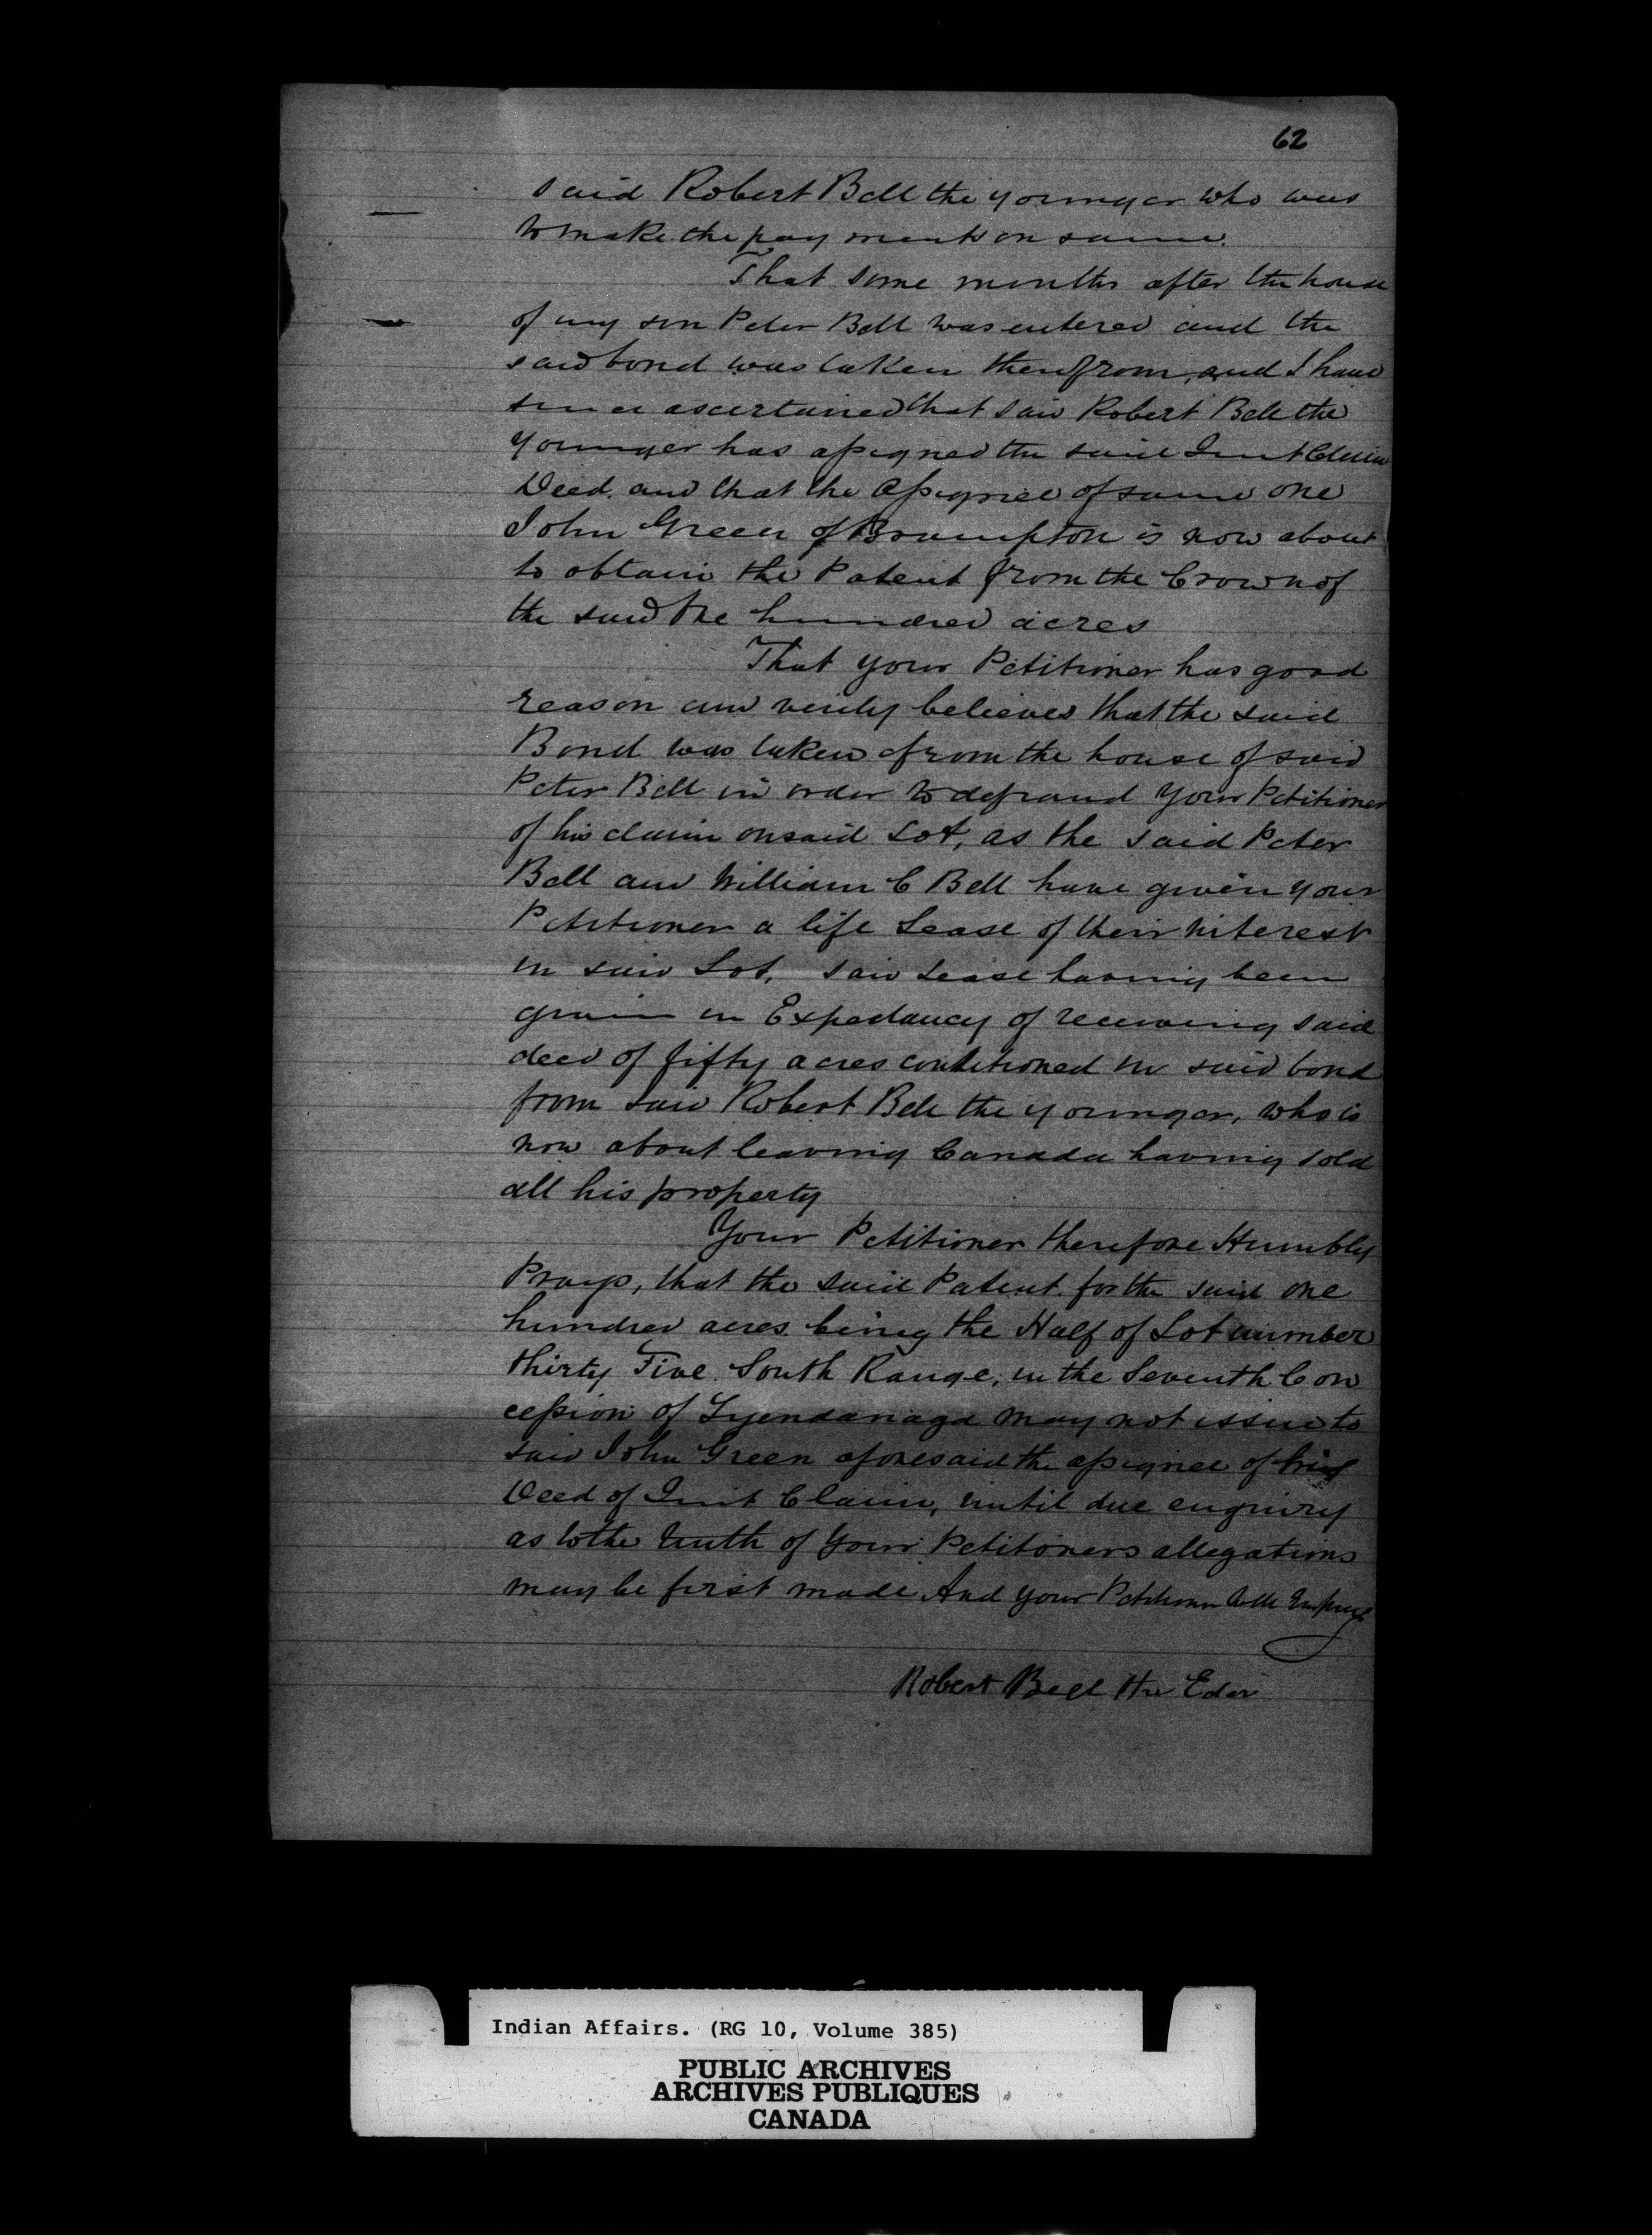 62
said Robert Bell the younger who was
to make the payments on same.
That some months after the house
of my son Peter Bell was entered and the
said bond was taken therefrom, and I have
since ascertained that said Robert Bell the
younger has assigned the said Quit Claim
Deed. and that the assignee of same one
John Green of Brampton is now about
to obtain the Patent from the Crown of
the said One hundred acres
That your Petitioner has good
reason and verily believes that the said
Bond was taken from the house of said
Peter Bell in order to defraud Your Petitioner
of his claim on said Lot, as the said Peter
Bell and William C Bell have given your
Petitioner a life Lease of their interest
in said Lot, said Lease having been
given in Expectancy of receiving said
deed of fifty acres conditioned in said bond
from said Robert Bell the younger, who is
now about leaving Canada having sold
all his property
Your Petitioner therefore Humbly
Prays, that the said Patent for the said one
hundred acres being the Half of Lot number
thirty Five South Range, in the Seventh Con
cession of Tyendanaga may not issue to
said John Green aforesaid the assignee of
Deed of Quit Claim, until due enquiry
as to the truth of Your Petitioners allegations
may be first made And your Petitioner will
Robert Bell the Elder
Indian Affairs. (RG 10, Volume 385)
PUBLIC ARCHIVES
ARCHIVES PUBLIQUES
CANADA